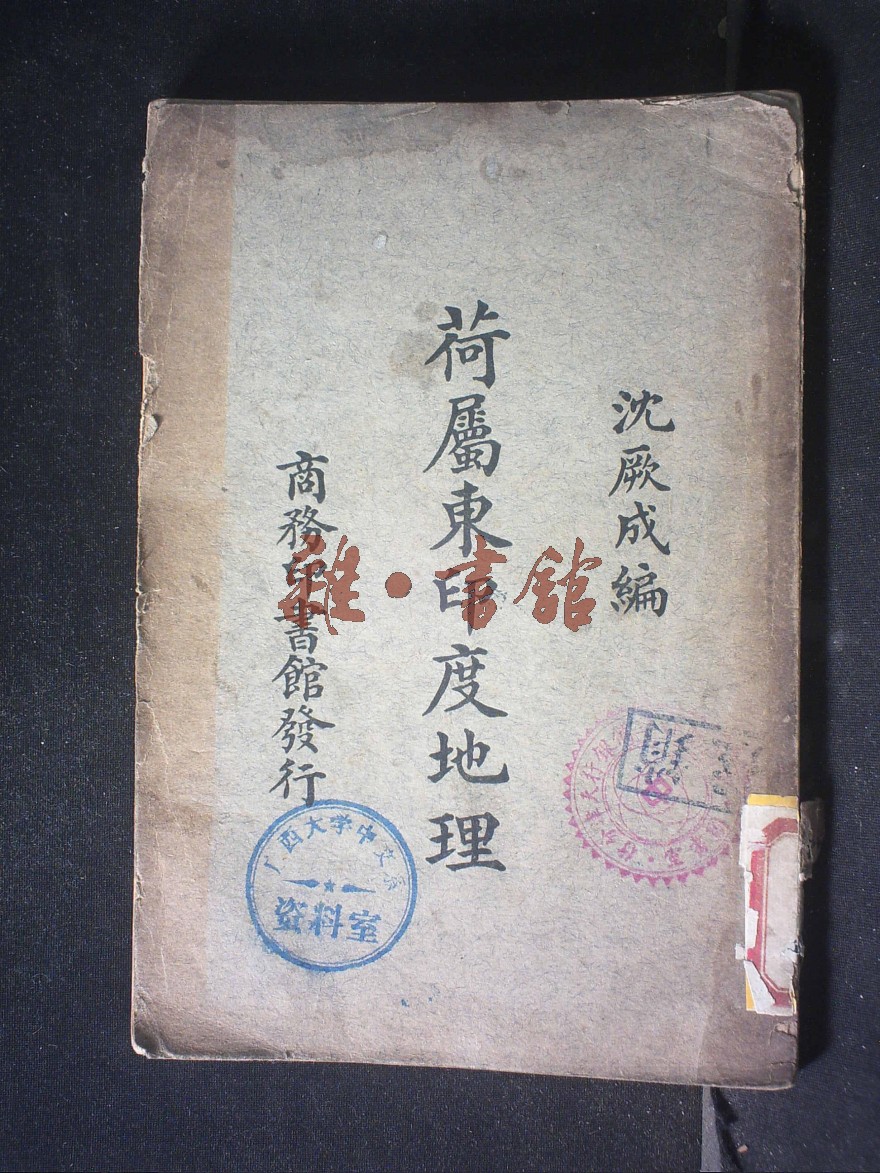 沈厥成編
荷屬東印度地理
商務印書館發行
雅·書館
广西大学中文系
资料室